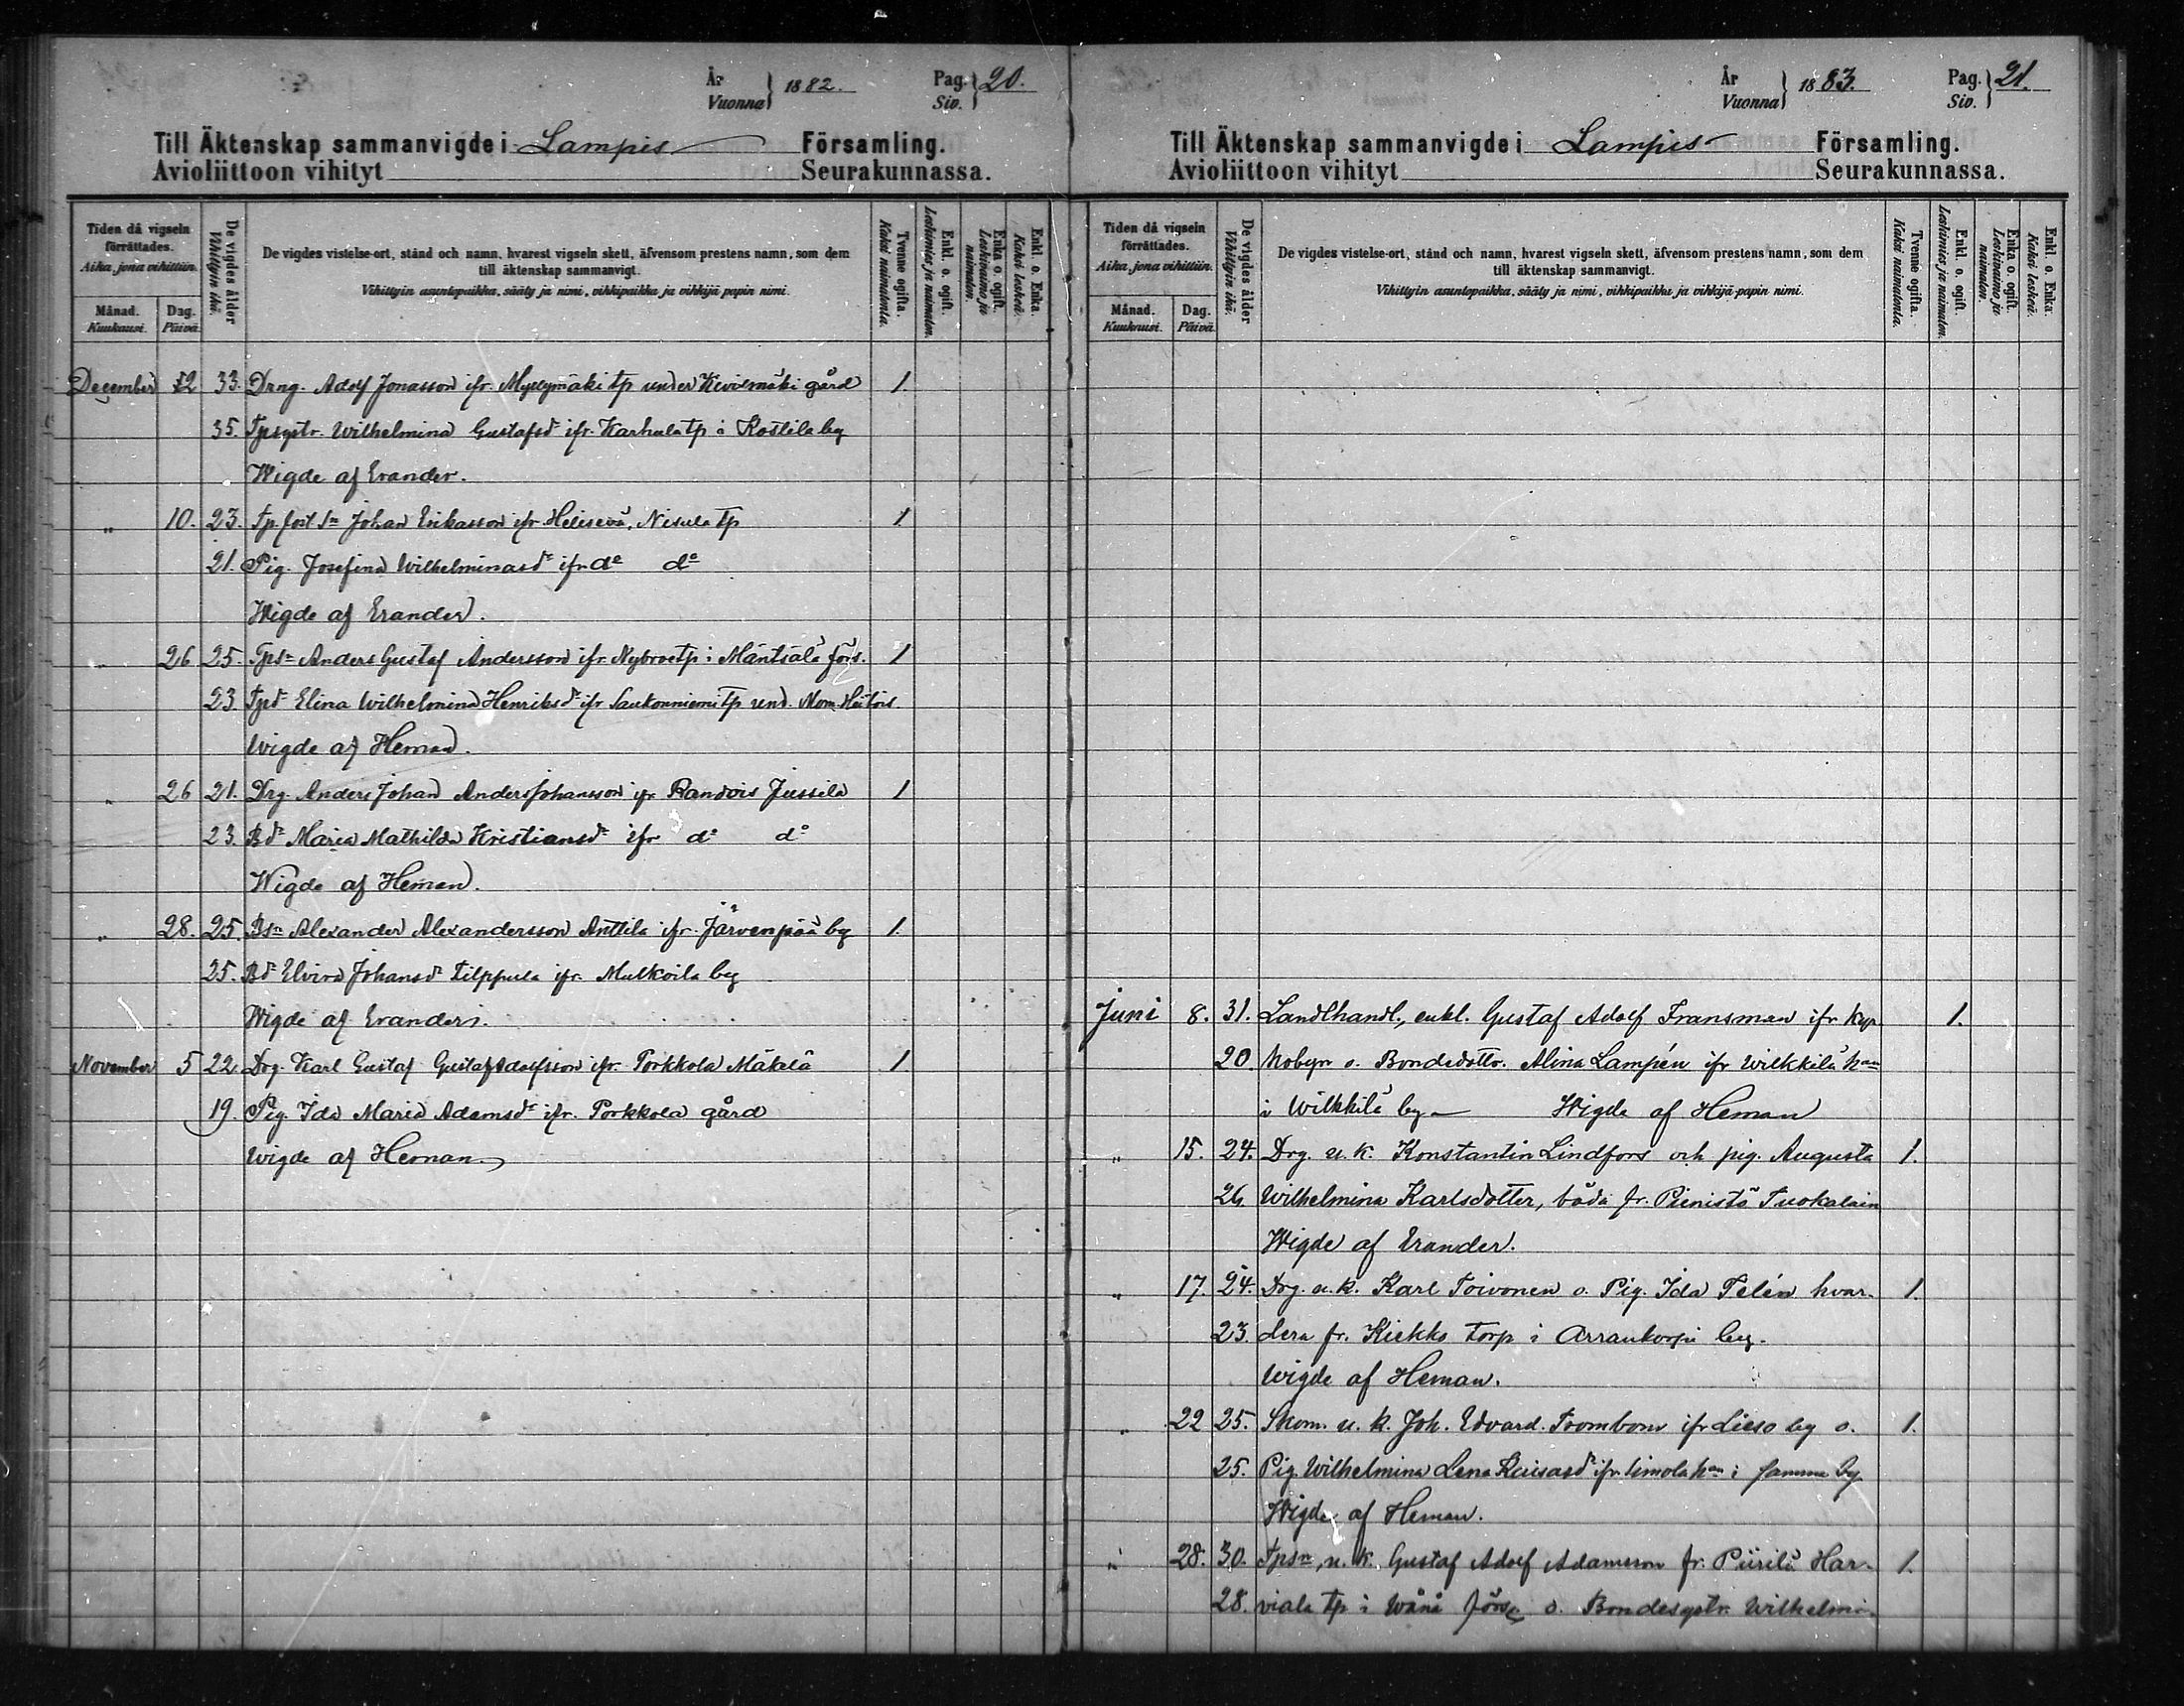 År Vuonna 1882. Pag. Siv. 20.
Till Äktenskap sammanvigde i Lampis Församling.
Avioliittoon vihityt Seurakunnassa.
Tiden då vigseln förrättades.
Aika, jona vihittiin.
Månad.
Kuukausi.
Dag.
Päivä.
De vigdes ålder
Vihittyin ikä.
De vigdes vistelse-ort, stånd och namn, hvarest vigseln skett, äfvensom prestens namn, som dem
till äktenskap sammanvigt.
Vihittyin asuntopaikka, sääty ja nimi, vihkipaikka ja vihkijä-papin nimi.
Tvenne ogifta.
Kaksi naimatonta.
Enkl. o. ogift.
Leskimies ja naimaton.
Enka o. ogift.
Leskinaimo ja naimaton.
Enkl. o. Enka.
Kaksi leskeä.
December 12 33. Drng. Adolf Jonasson ifr. Myllymäki tp under Kivismäki gård 1.
35. Tpsystr. Wilhelmina Gustafsd ifr. Karhula tp i Kostila by
Wigde af Erander.
„ 10. 23. Tp. fost. sn Johan Eriksson ifr Helisevä, Nisula tp 1
21. Pig. Josefina Wilhelminasdr ifr do do
Wigde af Erander.
„ 26 25. Tpsn Anders Gustaf Andersson ifr Nybroetp i Mäntsälä förs. 1
23. Tpdr Elina Wilhelmina Henriksdr ifr Saukonniemi tp und.
Wigde af Heman.
„ 26 21. Drg. Anders Johan Andersjohansson ifr Randois Jussila 1
23. Bdr Maria Mathilda Kristiansdr ifr do do
Wigde af Heman.
„ 28. 25. Bsn Alexander Alexandersson Anttila ifr. Järvenpää by 1.
25. Bdr Elvira Johansdr Tilppula ifr. Mulkoila by
Wigde af Erander.
November 5 22. Drg. Karl Gustaf Gustafadolfsson ifr. Porkkola Mäkelä 1
19. Pig. Ida Maria Adamsdr ifr. Porkkola gård
Wigde af Heman.
År Vuonna 1883. Pag. Siv. 21.
Till Äktenskap sammanvigde i Lampis Församling.
Avioliittoon vihityt Seurakunnassa.
Tiden då vigseln förrättades.
Aika, jona vihittiin.
Månad.
Kuukausi.
Dag.
Päivä.
De vigdes ålder
Vihittyin ikä.
De vigdes vistelse-ort, stånd och namn, hvarest vigseln skett, äfvensom prestens namn, som dem
till äktenskap sammanvigt.
Vihittyin asuntopaikka, sääty ja nimi, vihkipaikka ja vihkijä-papin nimi.
Tvenne ogifta.
Kaksi naimatonta.
Enkl. o. ogift.
Leskimies ja naimaton.
Enka o. ogift.
Leskinaimo ja naimaton.
Enkl. o. Enka.
Kaksi leskeä.
Juni 8. 31. Landthandl., enkl. Gustaf Adolf Fransman ifr Kyr 1.
20. koby o. Bondedottr. Alina Lampén ifr Wilkkilä hn
i Wilkkilä by — Wigde af Heman
„ 15. 24. Drg. u. k. Konstantin Lindfors och pig. Augusta 1.
26. Wilhelmina Karlsdotter, båda fr. Pienistö Tuokalain
Wigde af Erander.
„ 17. 24. Drg. u. k. Karl Toivonen o. Pig. Ida Felén hvar- 1.
23. dera fr. Kiekko torp i Arrankorpi by.
Wigde af Heman.
„ 22 25. Skom. u. k. Joh. Edvard Trombom ifr Lieso by o. 1.
25. Pig. Wilhelmina Lena Kaisasdr ifr. Simola hn i samma by
Wigde af Heman.
„ 28. 30. Tpsn, u. k. Gustaf Adolf Adamsson fr. Piirilä Har- 1.
28. viala tp i Wånå förs. o. Bondesystr. Wilhelmi-